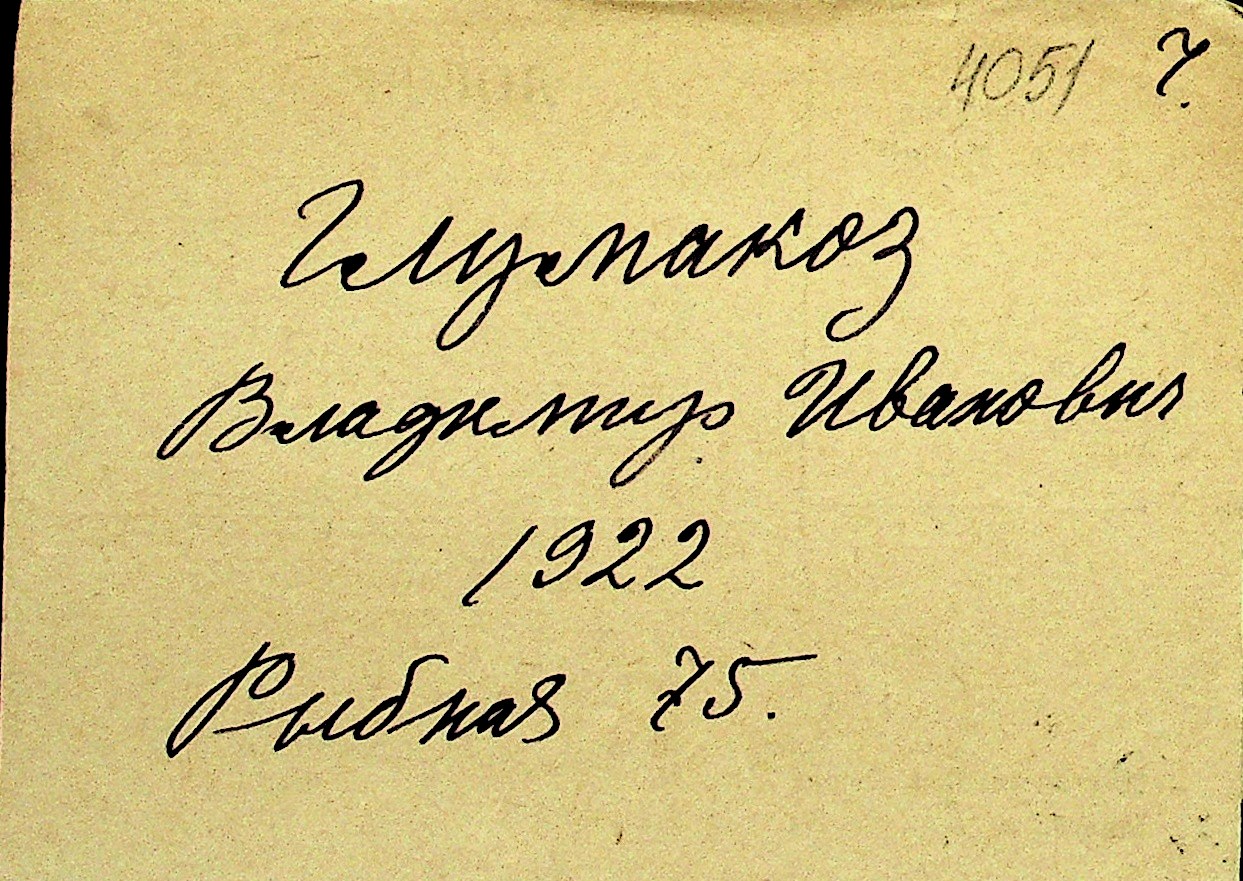 4051 7.
Глумакоз
Владимир Иванович
1922
Рыбная 75.